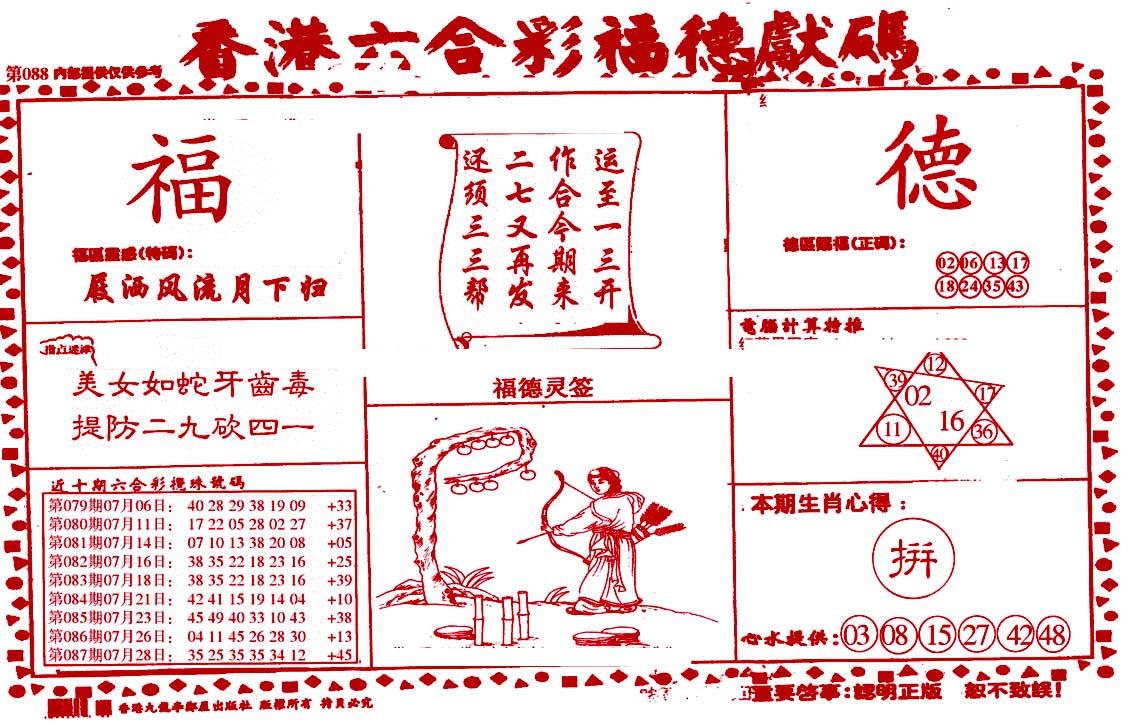 香港六合彩福德獻碼
第088 内部提供仅供参考
福
福區靈感(特碼):
屐洒风流月下归
指点迷津
美女如蛇牙齒毒
提防二九砍四一
近十期六合彩攪珠號碼
第079期07月06日: 40 28 29 38 19 09 +33
第080期07月11日: 17 22 05 28 02 27 +37
第081期07月14日: 07 10 13 38 20 08 +05
第082期07月16日: 38 35 22 18 23 16 +25
第083期07月18日: 38 35 22 18 23 16 +39
第084期07月21日: 42 41 15 19 14 04 +10
第085期07月23日: 45 49 40 33 10 43 +38
第086期07月26日: 04 11 45 26 28 30 +13
第087期07月28日: 35 25 35 35 34 12 +45
运至一三开
作合今期来
二七又再发
还须三三帮
福德灵签
德
德區賜福(正碼):
02 06 13 17
18 24 35 43
電腦計算特推
12
39 02 17
11 16 36
40
本期生肖心得:
拼
心水提供: 03 08 15 27 42 48
香港九龍 出版社 版權所有 拷貝必究
重要啓事:認明正版 恕不致誤!